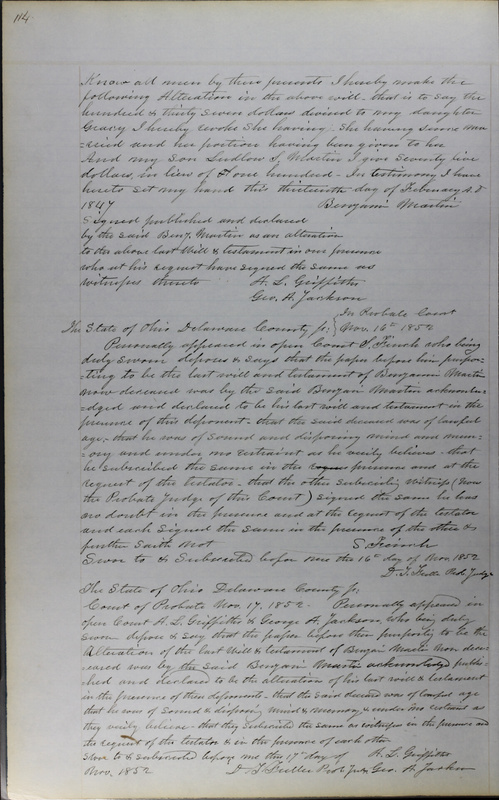 114
Know all men by these presents I hereby make the
following Alteration in the above will. that is to say the
hundred & thirty seven dollars devised to my daughter
I hereby revoke She having
and her portion having been given to her
And my Son Ludlow S. Martin I give Seventy five
dollars, in lieu of One hundred - In testimony I have
hereto set my hand this thirteenth day of February A.D
1847 Benjamin Martin
Signed published and declared
by the said Benj. Martin as an alteration
to the above last Will & testament in our presence
who at his request have signed the same as
witnesses thereto H. L. Griffiths
Geo. A. Jackson
The State of Ohio Delaware County Ss; In Probate Court
Nov. 16th 1852
Personally appeared in open Court S. Finch who being
duly sworn deposes & says that the paper before him purpor-
-ting to be the last will and testament of Benjamin Martin
now deceased was by the said Benjain Martin acknowle-
-dged and declared to be his last will and testament in the
presence of this deponent - that the said deceased was of lawful
age, that he was of sound and disposing mind and mem-
-ory and under no restraint as he verily believes - that
he subscribed the same in the presence and at the
request of the testator - that the other subscribing witness (now
the Probate Judge of this Court) signed the same he has
no doubt in the presence and at the request of the testator
and each signed the same in the presence of the other &
further saith not S Finch
Sworn to & Subscribed before me this 16th day of Nov. 1852
D. T. Fuller Prob. Judge
The State of Ohio Delaware County Ss;
Court of Probate Nov. 17. 1852. Personally appeared in
open Court H. L. Griffiths & George A. Jackson who being duly
sworn depose & say that the paper before them purporting to be the
Alteration of the last Will & testament of Benjain Martin now dece-
-eased was by the said Benjain Martin acknowledged publis-
-hed and declared to be the alteration of his last will & testament
in the presence of these deponents - that the said deceased was of lawful age
that he was of sound & disposing mind & memory & under no restraint as
they verily believe - that they subscribed the same as witnesses in the presence and
at the request of the testator & in the presence of each other
Sworn to & subscribed before me this 17th day of H. L. Griffiths
Nov. 1852 D. T. Fuller Prob Judge Geo. A. Jackson